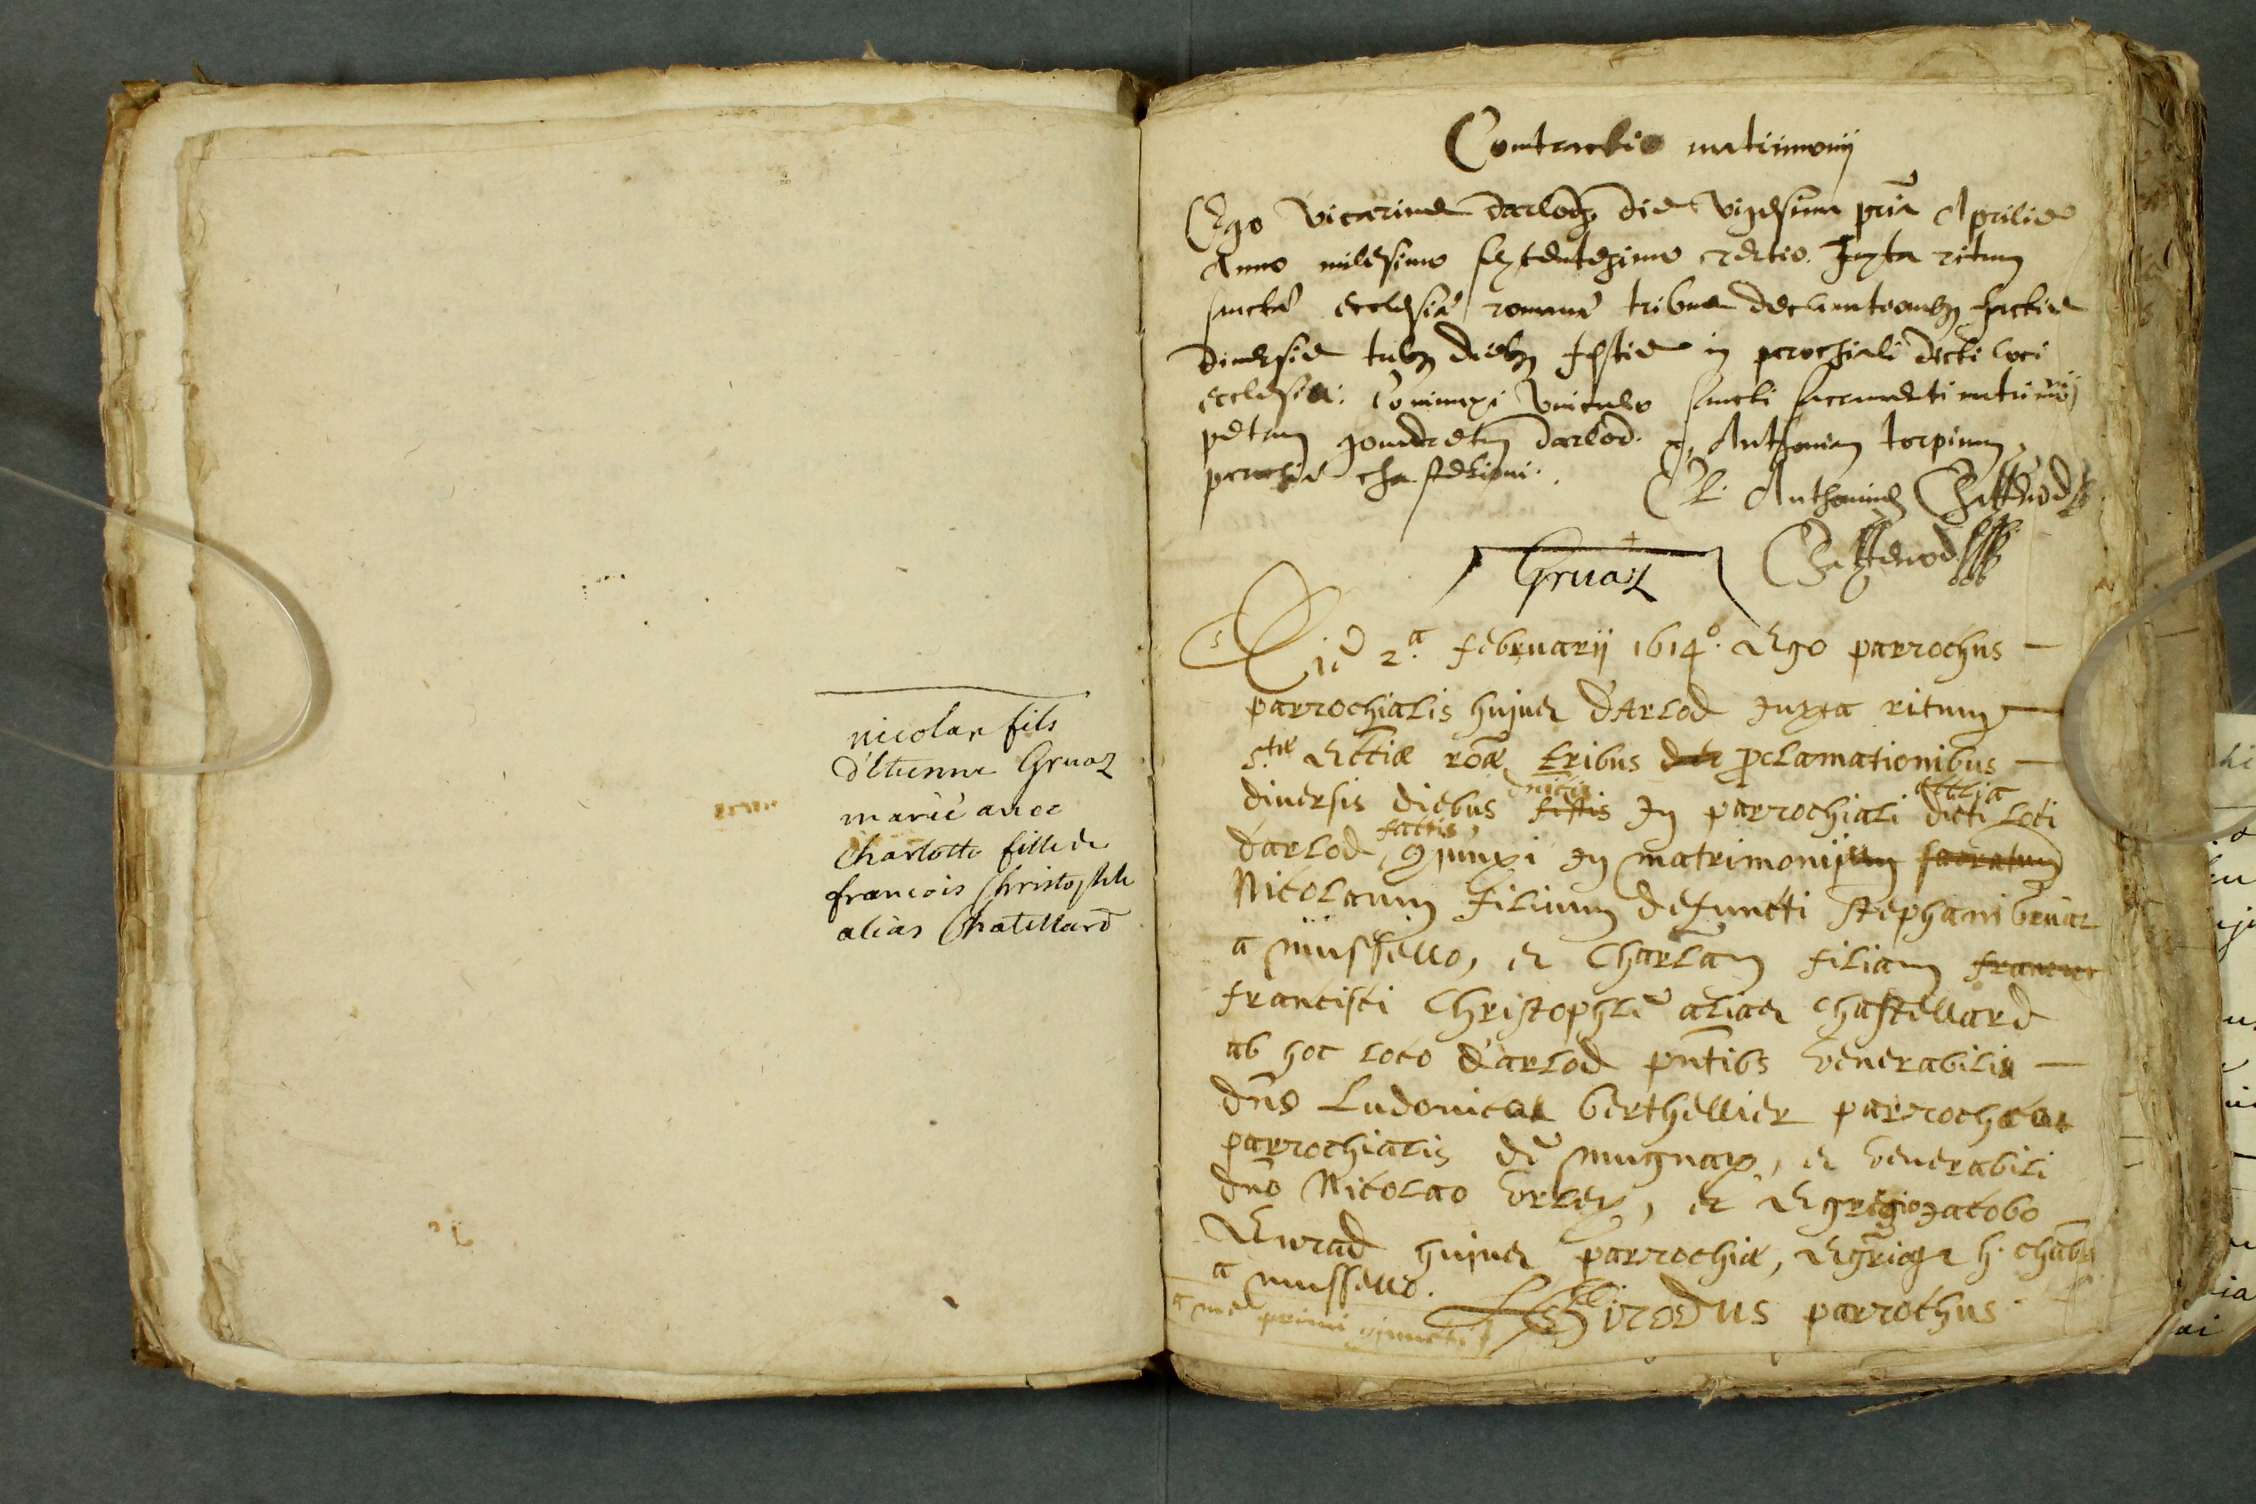 nicolas fils
d'Etienne Gruaz
marié avec
Charlotte fille de
francois Christophle
alias Chatellard
Contractio matrimonij
Ego vicarius darlodz die vigesima prīa Aprilis
Anno milesimo sexcentesimo Juxta ritum
sanctæ ecclesiæ romanæ tribus factis
diversis diebz festis in parochiali dicti loci
ecclesia: Coniunxi vinculo sancti sacramenti matrimōij
petrum darlod. Anthoniam
parochiæ
Anthonius
Gruaz
Die 2.a februarij 1614.o Ego parrochus
parrochialis hujus d'Arlod Juxta ritum
s.tæ Eccliæ roāæ tribus proclamationibus
diversis diebus festis In parrochiali ecclia dicti loci
darlod, factis, 9junxi In matrimonium sacratum
Nicolaum filium defuncti stephani Gruaz
a mussello, et Charlam filiam
francisci Christophle alias Chastellard
ab hoc loco d'arlod pntibs venerabili
dno Ludovico berthellier parrocho
parrochialis de mugnax, et venerabili
dno Nicolao et Egregio Jacobo
hujus parrochiæ, Egrigi h. chāb
a mussello.
Girodus parrochus
a me primi 9juncti